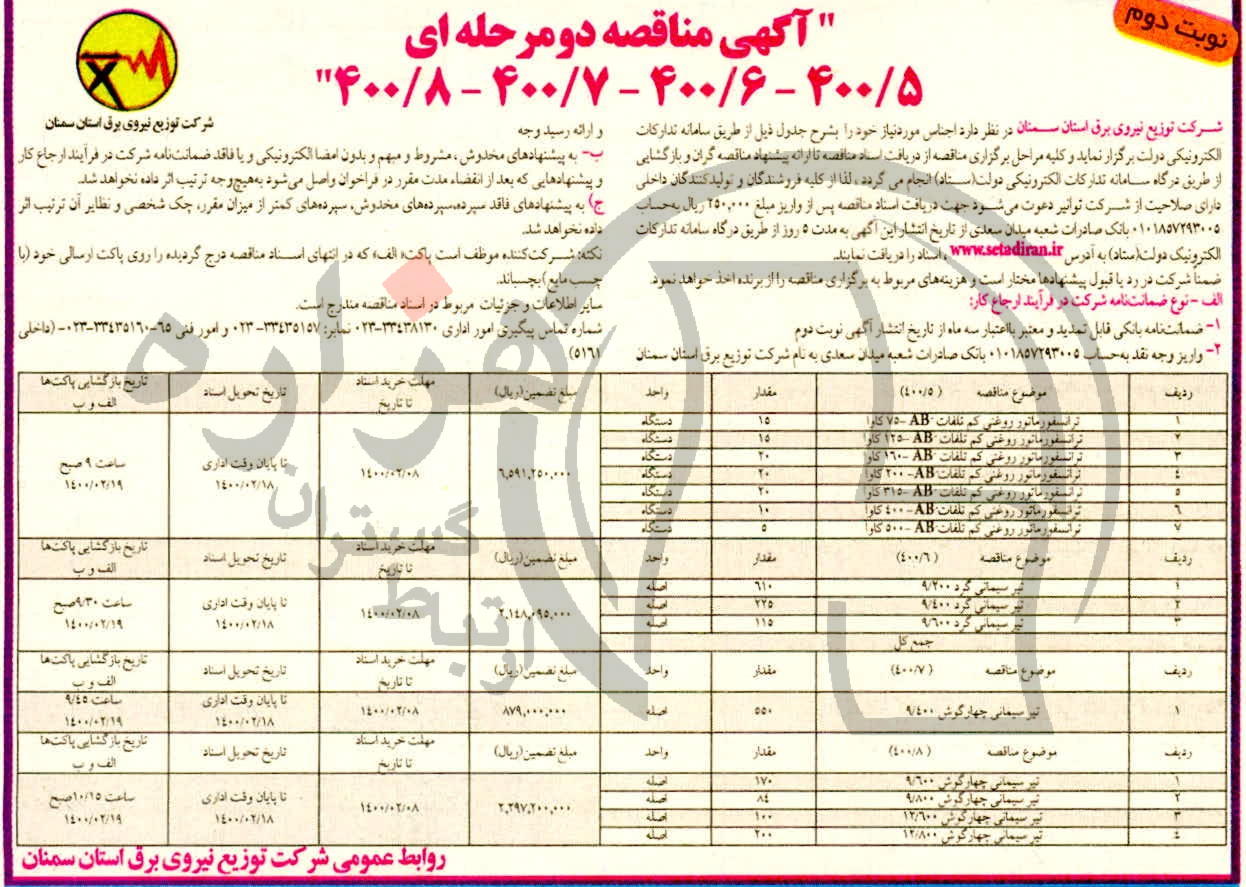 نوبت دوم
" آگهی مناقصه دو مرحله ای
۴۰۰/۵ - ۴۰۰/۶ - ۴۰۰/۷ - ۴۰۰/۸"
شرکت توزیع نیروی برق استان سمنان
شرکت توزیع نیروی برق استان سمنان در نظر دارد اجناس موردنیاز خود را بشرح جدول ذیل از طریق سامانه تدارکات
الکترونیکی دولت برگزار نماید و کلیه مراحل برگزاری مناقصه از دریافت اسناد مناقصه تا ارائه پیشنهاد مناقصه گران و بازگشایی
از طریق درگاه سامانه تدارکات الکترونیکی دولت(ستاد) انجام می گردد ، لذا از کلیه فروشندگان و تولیدکنندگان داخلی
دارای صلاحیت از شرکت توانیر دعوت می‌شود جهت دریافت اسناد مناقصه پس از واریز مبلغ ۲۵۰,۰۰۰ ریال به‌حساب
۰۱۰۱۸۵۷۲۹۳۰۰۵ بانک صادرات شعبه میدان سعدی از تاریخ انتشار این آگهی به مدت ۵ روز از طریق درگاه سامانه تدارکات
الکترونیک دولت(ستاد) به آدرس www.setadiran.ir ، اسناد را دریافت نمایند.
ضمناً شرکت در رد یا قبول پیشنهادها مختار است و هزینه‌های مربوط به برگزاری مناقصه را از برنده اخذ خواهد نمود.
الف - نوع ضمانت‌نامه شرکت در فرآیند ارجاع کار:
۱- ضمانت‌نامه بانکی قابل تمدید و معتبر بااعتبار سه ماه از تاریخ انتشار آگهی نوبت دوم
۲- واریز وجه نقد به‌حساب ۰۱۰۱۸۵۷۲۹۳۰۰۵ بانک صادرات شعبه میدان سعدی به نام شرکت توزیع برق استان سمنان
و ارائه رسید وجه
ب- به پیشنهادهای مخدوش ، مشروط و مبهم و بدون امضا الکترونیکی و یا فاقد ضمانت‌نامه شرکت در فرآیند ارجاع کار
و پیشنهادهایی که بعد از انقضاء مدت مقرر در فراخوان واصل می‌شود به‌هیچ‌وجه ترتیب اثر داده نخواهد شد.
ج) به پیشنهادهای فاقد سپرده،سپرده‌های مخدوش، سپرده‌های کمتر از میزان مقرر، چک شخصی و نظایر آن ترتیب اثر
داده نخواهد شد.
نکته: شرکت‌کننده موظف است پاکت« الف» که در انتهای اسناد مناقصه درج گردیده را روی پاکت ارسالی خود (با
چسب مایع)بچسباند.
سایر اطلاعات و جزئیات مربوط در اسناد مناقصه مندرج است.
شماره تماس پیگیری امور اداری ۳۳۴۳۸۱۳۰-۰۲۳ نمابر: ۳۳۴۳۵۱۵۷- ۰۲۳ و امور فنی ۶۵-۳۳۴۳۵۱۶۰-۰۲۳- (داخلی
۵۱۶۱)
ردیف موضوع مناقصه (۴۰۰/۵) مقدار واحد مبلغ تضمین(ریال) مهلت خرید اسناد تا تاریخ تاریخ تحویل اسناد تاریخ بازگشایی پاکت‌ها الف و ب
۱ ترانسفورماتور روغنی کم تلفات AB- ۷۵ کاوا ۱۵ دستگاه
۲ ترانسفورماتور روغنی کم تلفات AB- ۱۲۵ کاوا ۱۵ دستگاه
۳ ترانسفورماتور روغنی کم تلفات AB- ۱۶۰ کاوا ۲۰ دستگاه
۴ ترانسفورماتور روغنی کم تلفات AB- ۲۰۰ کاوا ۲۰ دستگاه
۵ ترانسفورماتور روغنی کم تلفات AB- ۳۱۵ کاوا ۲۰ دستگاه
۶ ترانسفورماتور روغنی کم تلفات AB- ۴۰۰ کاوا ۱۰ دستگاه
۷ ترانسفورماتور روغنی کم تلفات AB- ۵۰۰ کاوا ۵ دستگاه
۶,۵۹۱,۲۵۰,۰۰۰ ۱۴۰۰/۰۲/۰۸ تا پایان وقت اداری ۱۴۰۰/۰۲/۱۸ ساعت ۹ صبح ۱۴۰۰/۰۲/۱۹
ردیف موضوع مناقصه (۴۰۰/۶) مقدار واحد مبلغ تضمین(ریال) مهلت خرید اسناد تا تاریخ تاریخ تحویل اسناد تاریخ بازگشایی پاکت‌ها الف و ب
۱ تیر سیمانی گرد ۹/۲۰۰ ۶۱۰ اصله
۲ تیر سیمانی گرد ۹/۴۰۰ ۲۲۵ اصله
۳ تیر سیمانی گرد ۹/۶۰۰ ۱۱۵ اصله
جمع کل
۲,۱۴۸,۰۹۵,۰۰۰ ۱۴۰۰/۰۲/۰۸ تا پایان وقت اداری ۱۴۰۰/۰۲/۱۸ ساعت ۹/۳۰صبح ۱۴۰۰/۰۲/۱۹
ردیف موضوع مناقصه (۴۰۰/۷) مقدار واحد مبلغ تضمین(ریال) مهلت خرید اسناد تا تاریخ تاریخ تحویل اسناد تاریخ بازگشایی پاکت‌ها الف و ب
۱ تیر سیمانی چهارگوش ۹/۴۰۰ ۵۵۰ اصله ۸۷۹,۰۰۰,۰۰۰ ۱۴۰۰/۰۲/۰۸ تا پایان وقت اداری ۱۴۰۰/۰۲/۱۸ ساعت ۹/۴۵ ۱۴۰۰/۰۲/۱۹
ردیف موضوع مناقصه (۴۰۰/۸) مقدار واحد مبلغ تضمین(ریال) مهلت خرید اسناد تا تاریخ تاریخ تحویل اسناد تاریخ بازگشایی پاکت‌ها الف و ب
۱ تیر سیمانی چهارگوش ۹/۶۰۰ ۱۷۰ اصله
۲ تیر سیمانی چهارگوش ۹/۸۰۰ ۸۴ اصله
۳ تیر سیمانی چهارگوش ۱۲/۶۰۰ ۱۰۰ اصله
۴ تیر سیمانی چهارگوش ۱۲/۸۰۰ ۲۰۰ اصله
۲,۲۹۷,۲۰۰,۰۰۰ ۱۴۰۰/۰۲/۰۸ تا پایان وقت اداری ۱۴۰۰/۰۲/۱۸ ساعت ۱۰/۱۵صبح ۱۴۰۰/۰۲/۱۹
روابط عمومی شرکت توزیع نیروی برق استان سمنان
هزاره
گستران
ارتباط